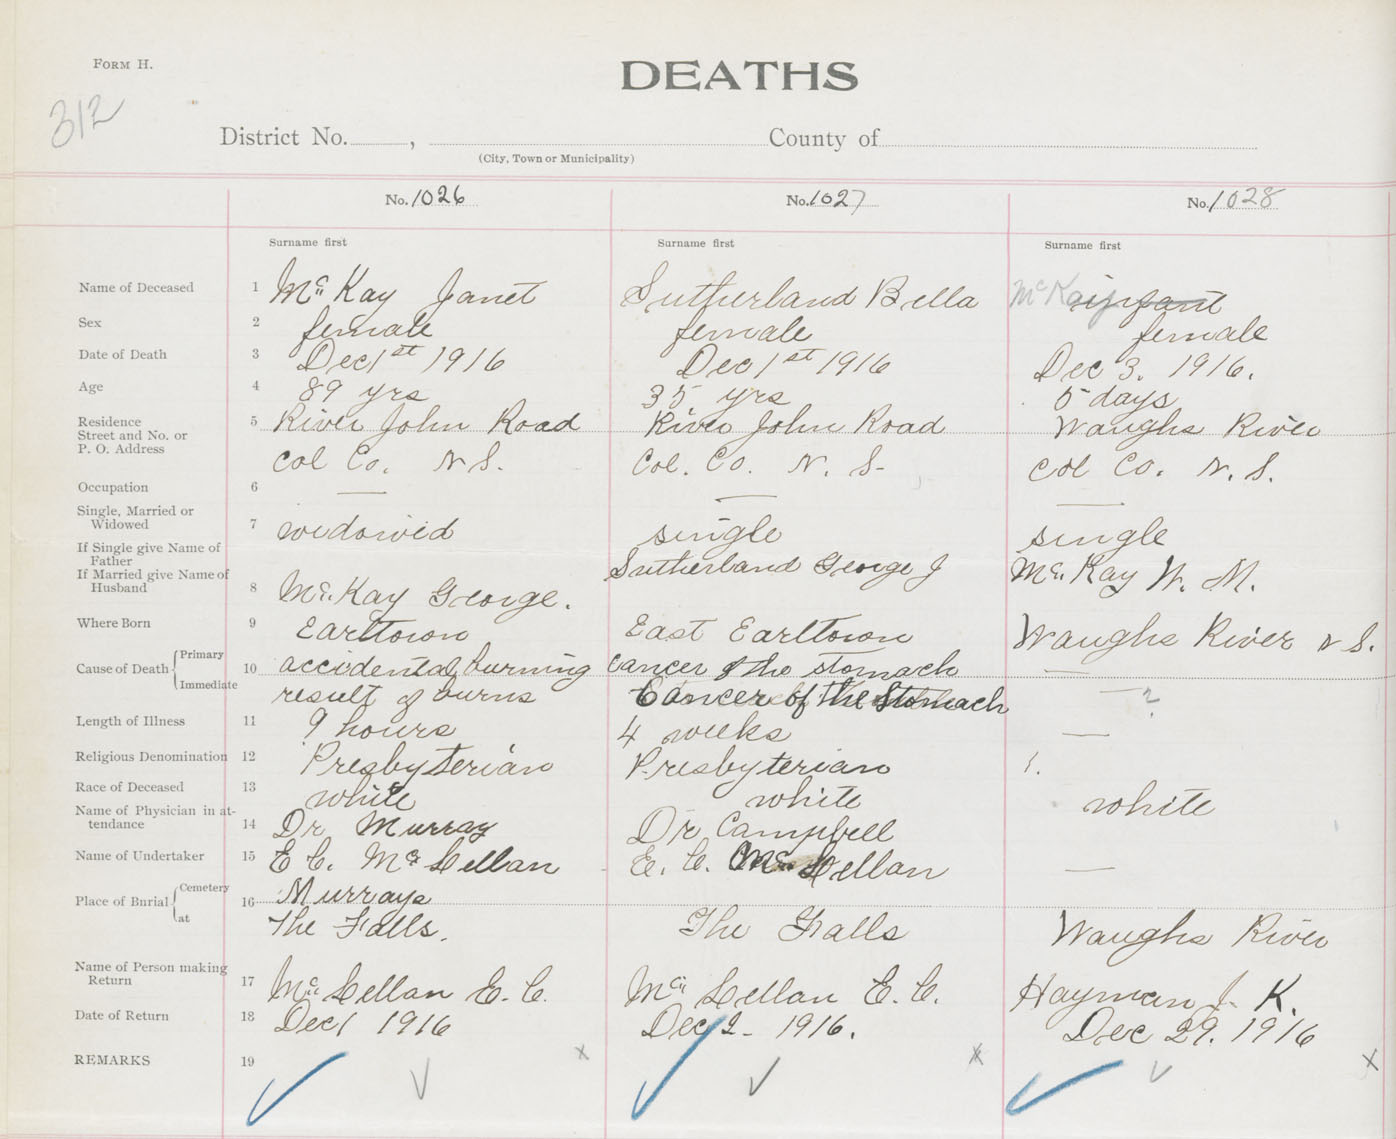 FORM H.
DEATHS
312
District No. , County of
(City, Town or Municipality)
No. 1026 No. 1027 No. 1028
Surname first Surname first Surname first
Name of Deceased 1 McKay Janet Sutherland Bella McKay infant
Sex 2 female female female
Date of Death 3 Dec 1st 1916 Dec 1st 1916 Dec 3. 1916.
Age 4 89 yrs 35 yrs 5 days
Residence 5 River John Road River John Road Waughs River
Street and No. or
P. O. Address Col Co. N S. Col. Co. N. S. Col Co. N. S.
Occupation 6 — — —
Single, Married or
Widowed 7 widowed single single
If Single give Name of
Father Sutherland George J McKay W. M.
If Married give Name of
Husband 8 McKay George.
Where Born 9 Earltown East Earltown Waughs River N S.
Cause of Death Primary 10 accidental burning cancer of the stomach —
Immediate result of burns Cancer of the Stomach — ?
Length of Illness 11 9 hours 4 weeks —
Religious Denomination 12 Presbyterian Presbyterian
Race of Deceased 13 white white white
Name of Physician in at-
tendance 14 Dr Murray Dr Campbell
Name of Undertaker 15 E C. McLellan E. C. McLellan —
Place of Burial Cemetery 16 Murrays
at The Falls. The Falls Waughs River
Name of Person making
Return 17 McLellan E. C. McLellan E. C. Hayman J. K.
Date of Return 18 Dec 1 1916 Dec 2 - 1916. Dec 29. 1916
REMARKS 19 x x x